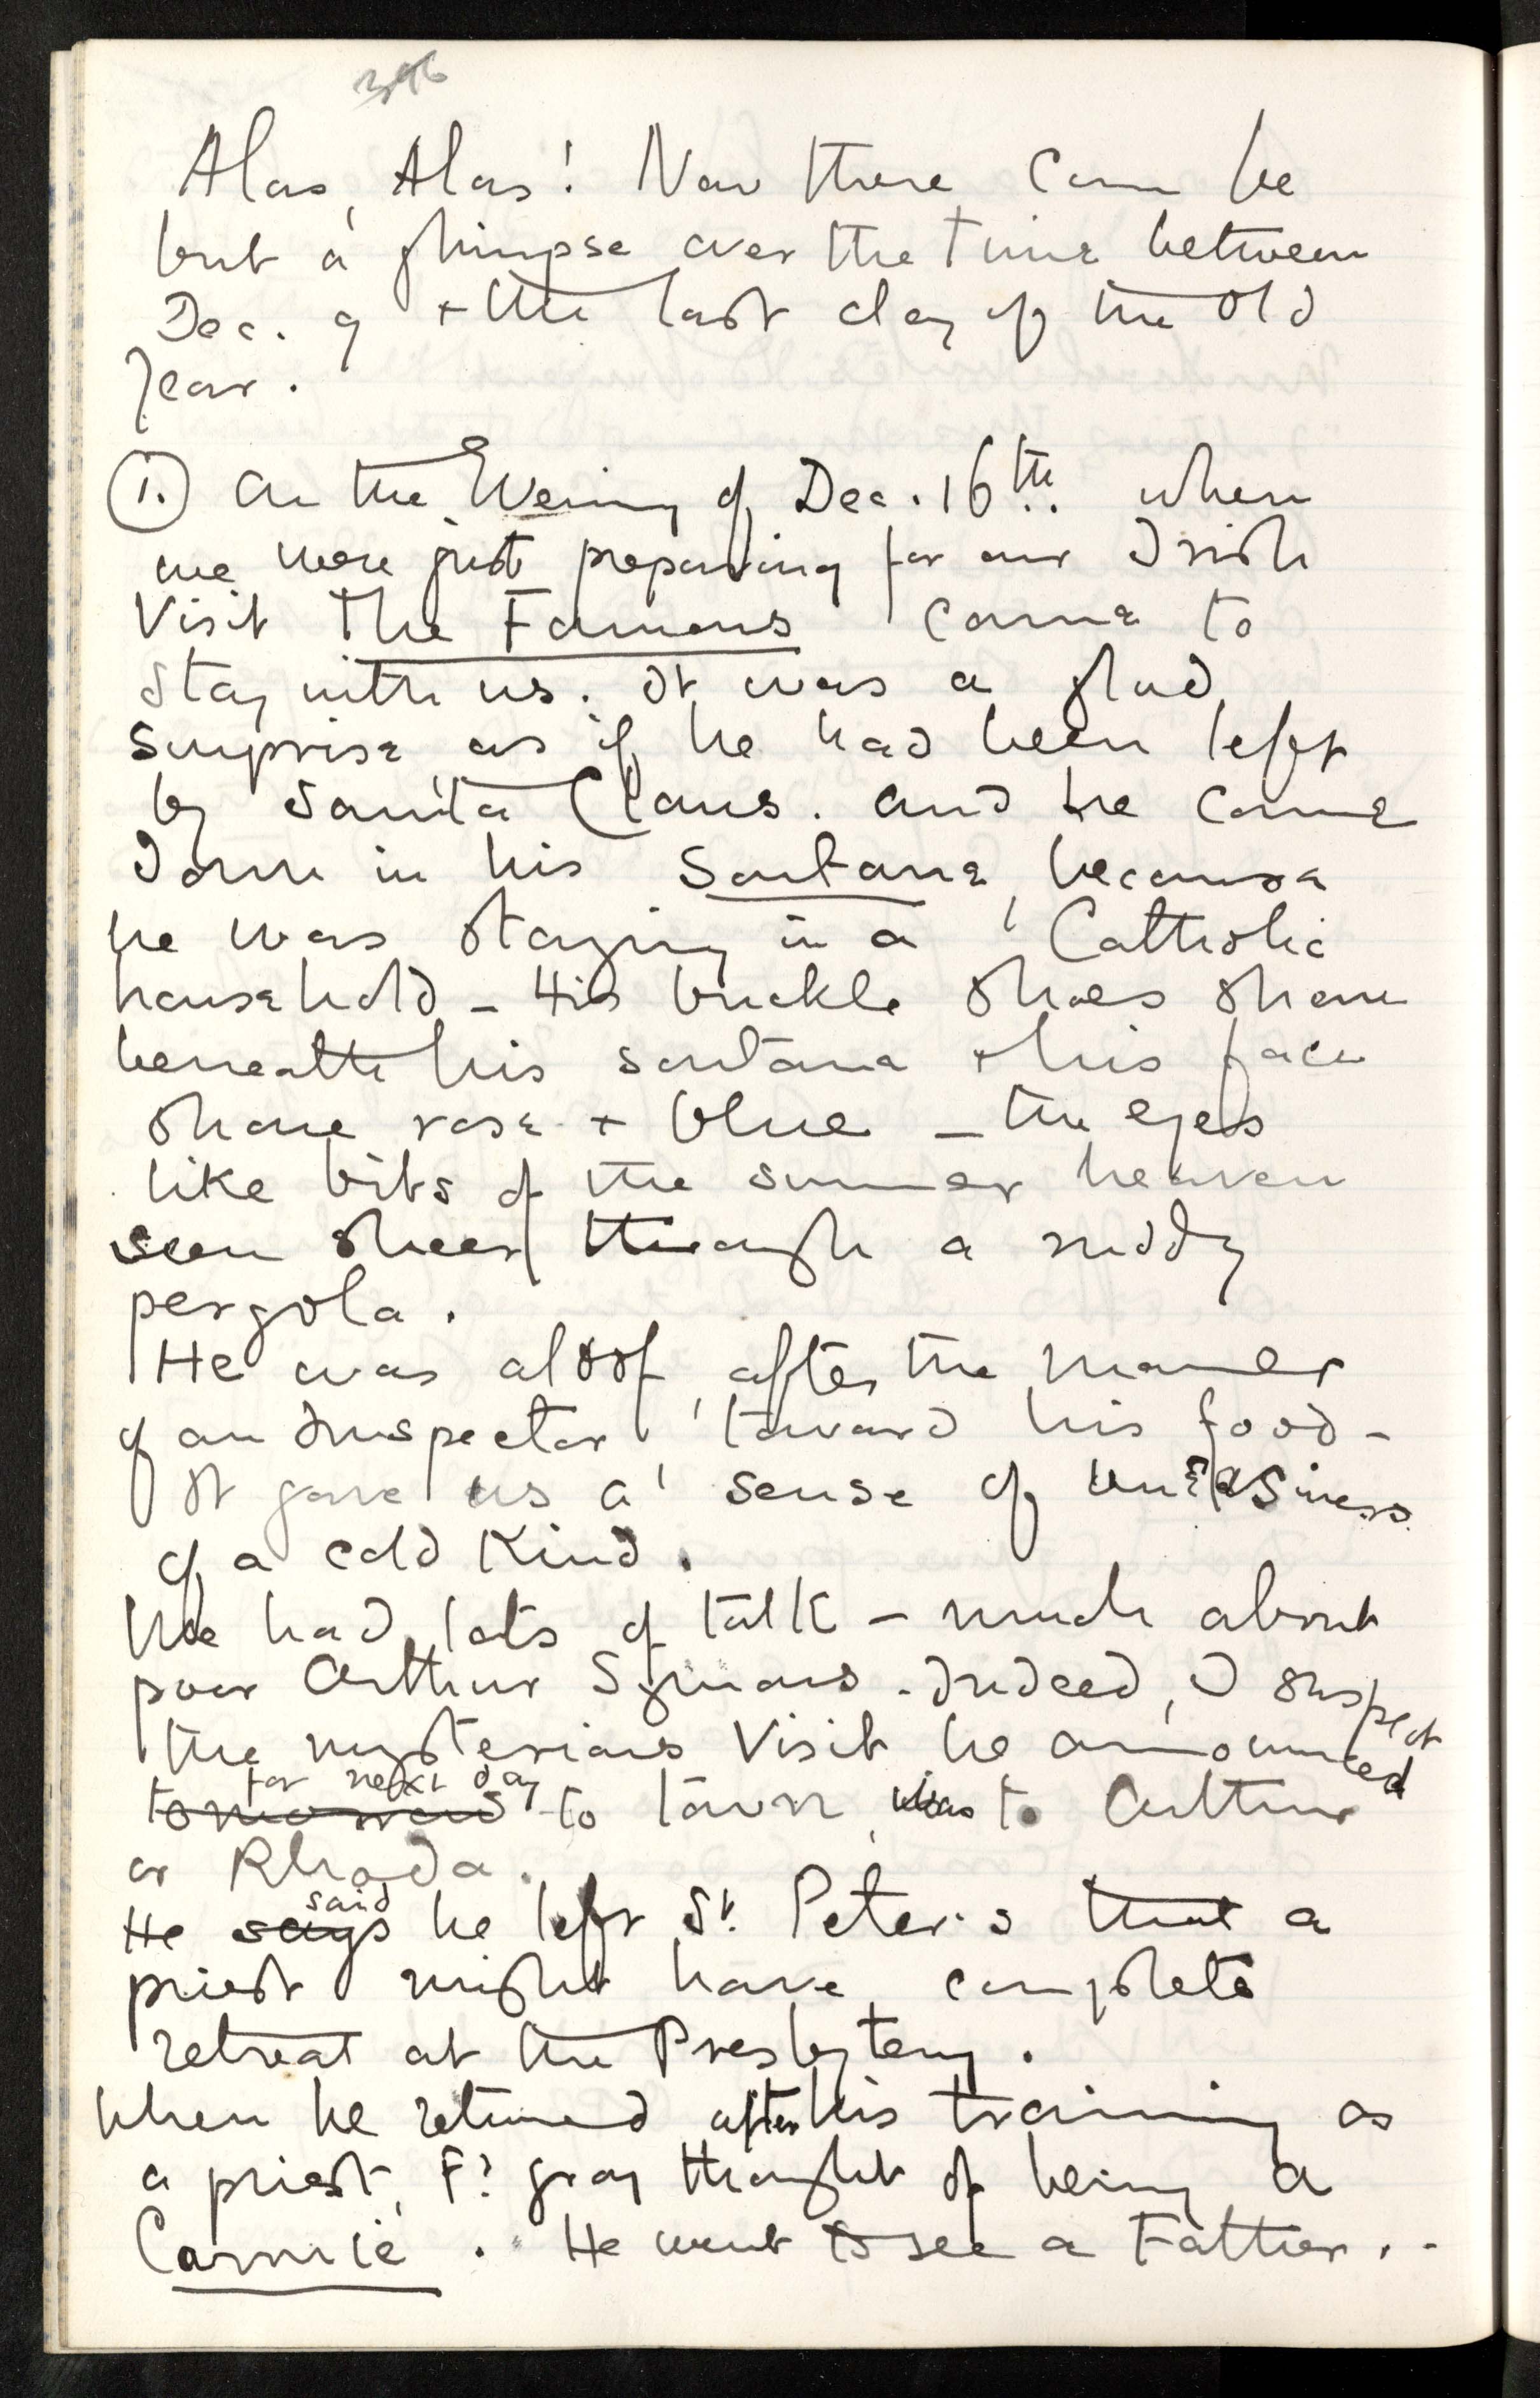 Alas, Alas! Now there can be
but a glimpse over the time between
Dec. 9 + the last day of the old
year.
1. On the Evening of Dec. 16th. when
we were just preparing for our Irish
Visit The Famous came to
stay with us. It was a glad
surprise, as if he had been left
by Santa Claus. And he came
down in his Soutane, because
he was staying in a Catholic
household - His buckle shoes shone
beneath his soutane + his face
shone rose + blue - the eyes
like bits of the summer heaven
seen sheer through a ruddy
pergola.
He was aloof, after the manner
of an Inspector, toward his food -
It gave us a sense of uneasiness
of a cold kind.
We had lots of talk - much about
poor Arthur Symons. Indeed, I suspect
the mysterious Visit he announced
for next day
to town, was to Arthur
or Rhoda.
said
He says he left St. Peter's that a
priest might have complete
retreat at the Presbytery.
When he returned after his training as
a priest, Fr. Gray thought of being a
Carmié. He went to see a Father..